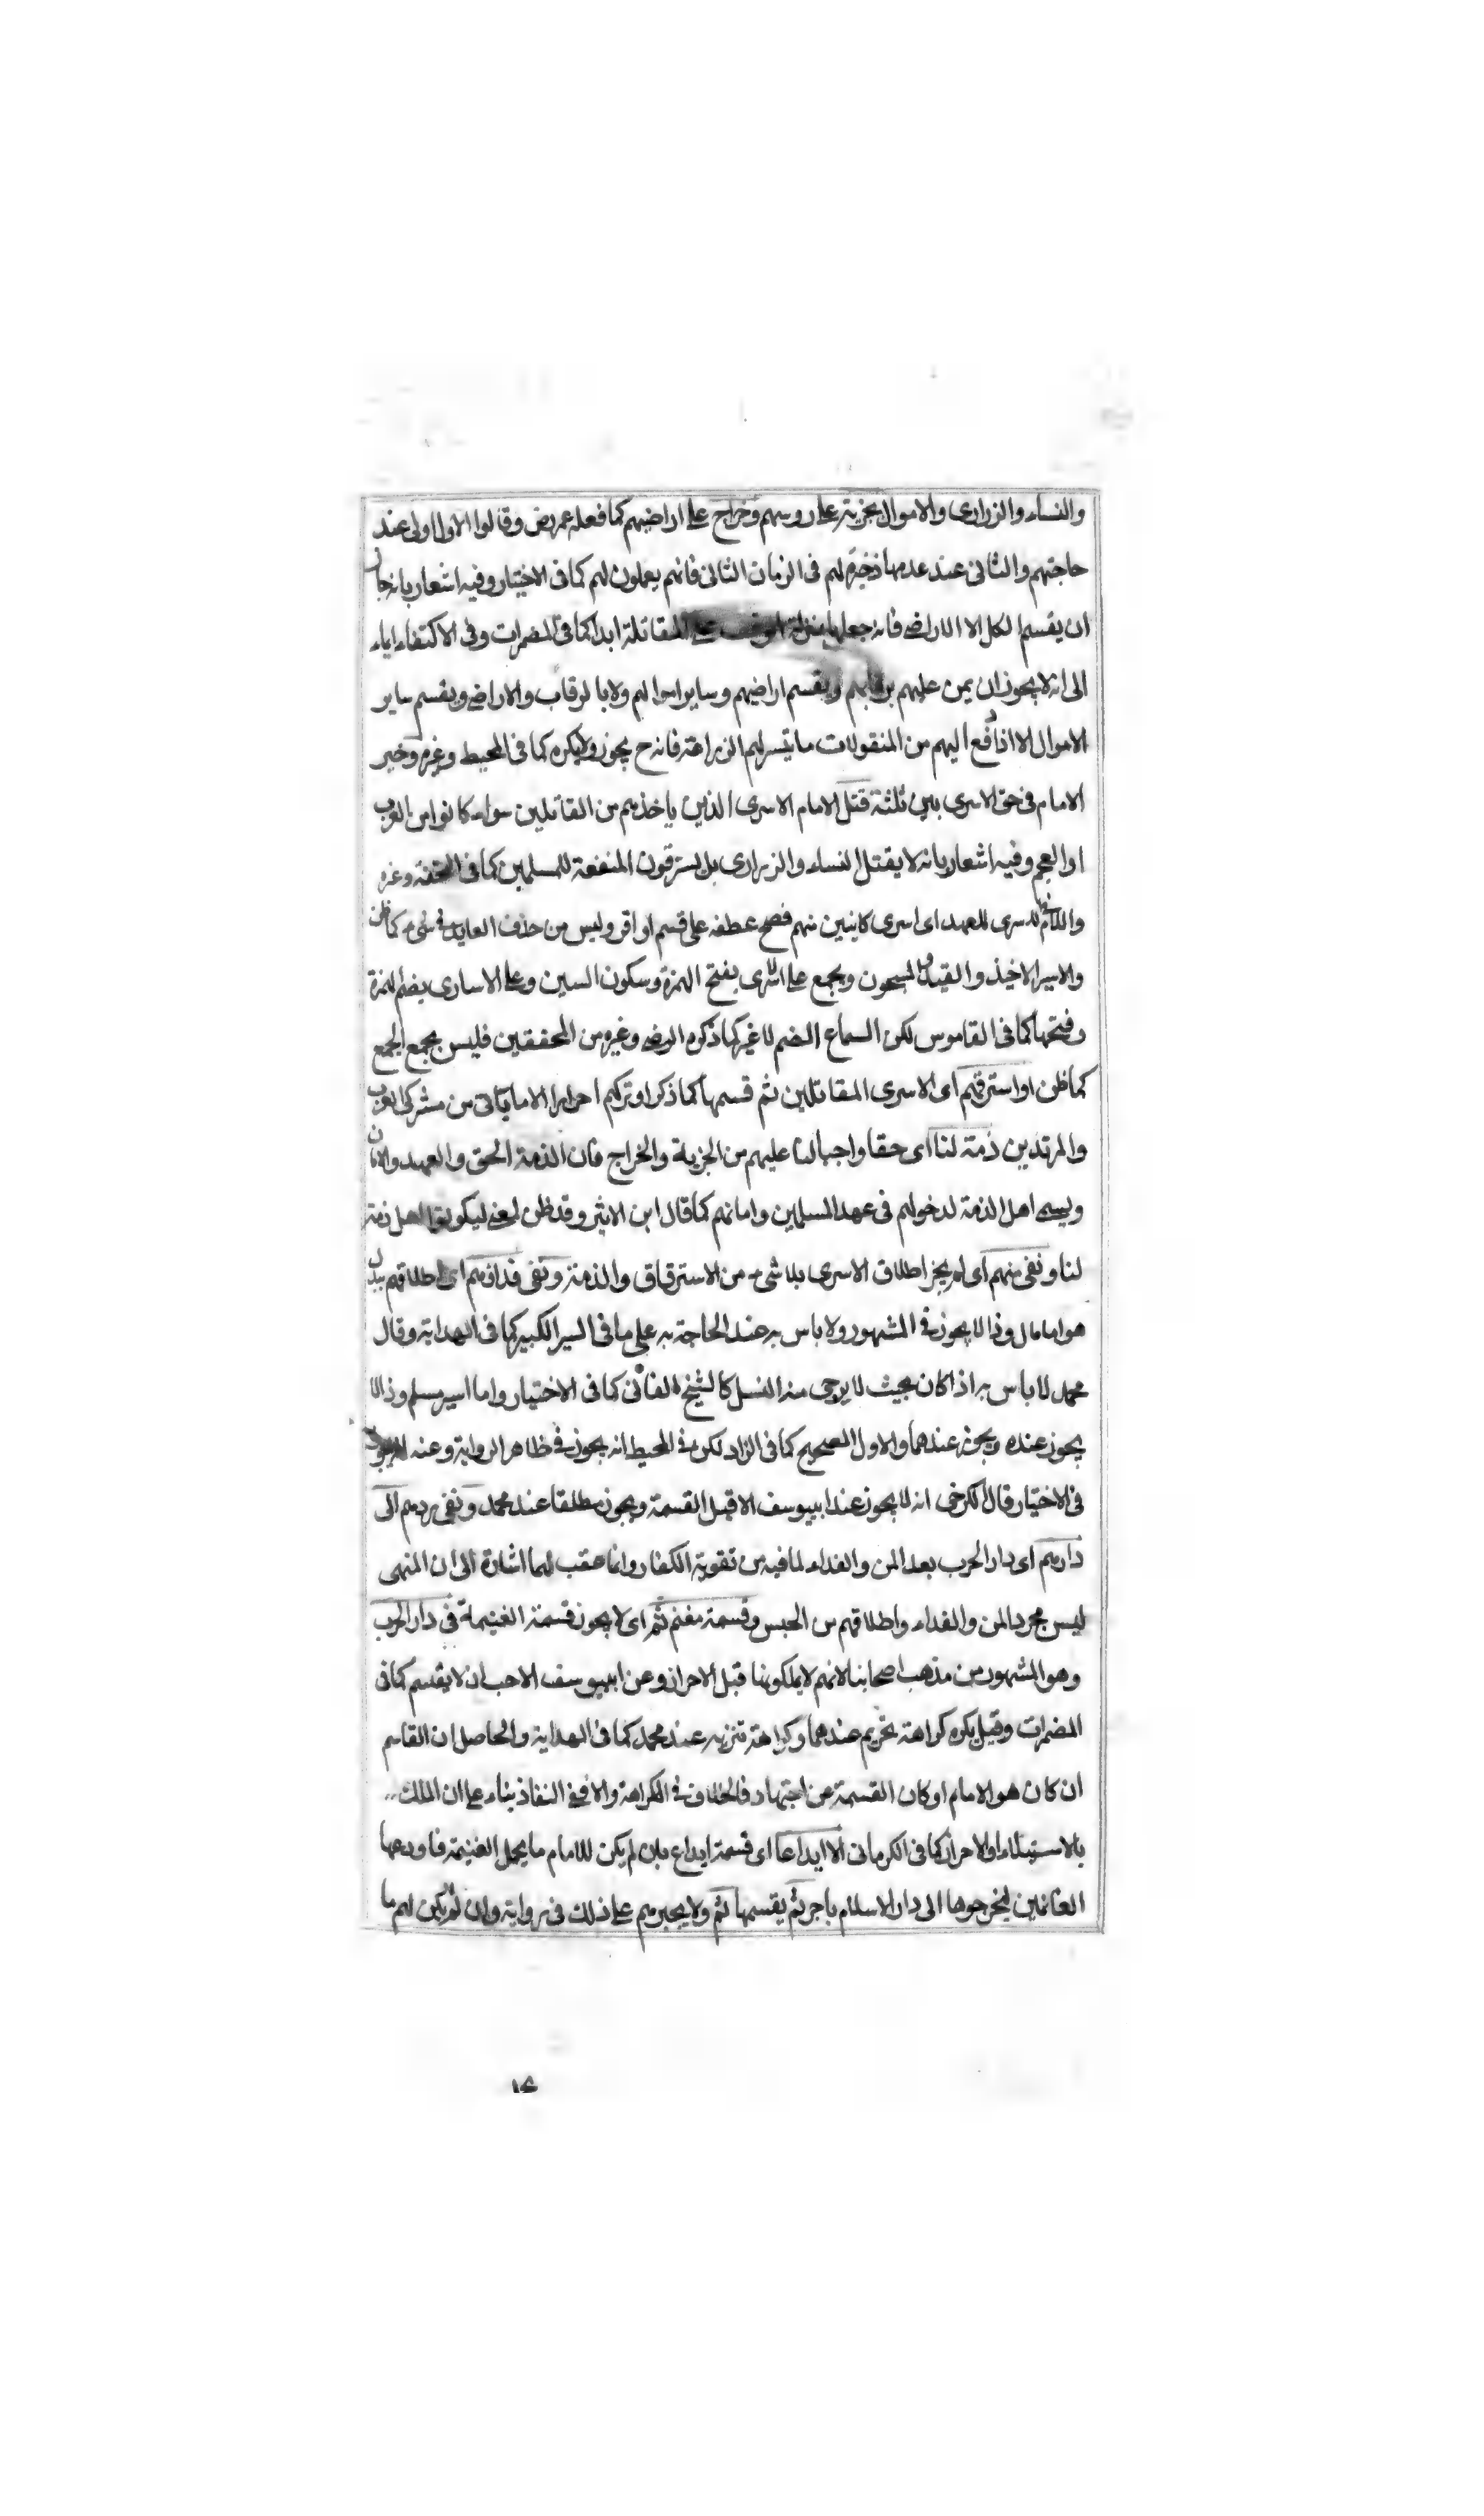 والنساء والزرارى والاموال بجزية على روسهم وخراج على اراضيهم كما فعله عمر رض وقالوا الاول اولى عند
حاجتهم والثانى عند عدمها ذخيرة لهم فى الزمان الثانى فانهم يعملون لهم كما فى الاختيار وفيه اشعار بانه جاز
ان يقسم الكل الا الاراضى فانه جعلها بمنزلة الوقف على المقاتلة ابدا كما فى المضمرات وفى الاكتفاء ايماء
الى انه لا يجوز ان يمن عليهم برقابهم ويقسم اراضيهم وساير اموالهم ولا بالرقاب والاراضى ويقسم ساير
الاموال الا اذا دفع اليهم من المنقولات ما يتيسر لهم الزراعة فانه ح يجوز ويكره كما فى المحيط وغيره وخير
الامام فى حق الاسرى بين ثلثة قتل الامام الاسرى الذين ياخذهم من القاتلين سواء كانوا من العرب
او العجم وفيه اشعار بانه لا يقتل النساء والزرارى بل يسترقون المنفعة للمسلمين كما فى التحفة وغيره
واللام للاسرى للعهد اى اسرى كاينين منهم فصح عطفه على قسم او اقر وليس من حذف العايد فى شىء كما ظن
والاسير الاخيذ والمقيد والمسجون ويجمع على الاسرى بفتح الهمزة وسكون السين وعلى الاسارى بضم الهمزة
وفتحها كما فى القاموس لكن السماع الضم لا غير كما ذكره الرضى وغيره من المحققين فليس بجمع الجمع
كما ظن او استرقهم اى الاسرى المقاتلين ثم قسمها كما ذكر او تركهم احرارا الا ما ياتى من مشركى العرب
والمرتدين ذمة لنا اى حقا واجبا لنا عليهم من الجزية والخراج فان الذمة الحق والعهد والامان
ويسمى اهل الذمة لدخولهم فى عهد المسلمين وامانهم كما قال ابن الاثير وقد ظن لمعنى ليكونوا اهل ذمة
لنا ونفى منهم اى لم يجز اطلاق الاسرى بلا شىء من الاسترقاق والذمة ونفى فداؤهم اى اطلاقهم ببدل
هو اما مال وذا لا يجوز فى المشهور ولا باس به عند الحاجة به على ما فى السير الكبير كما فى الهداية وقال
محمد لا باس به اذا كان بحيث لا يرجى منه النسل كالشيخ الفانى كما فى الاختيار واما اسير مسلم وذا لا
يجوز عنده ويجوز عندهما والاول الصحيح كما فى الزاد لكن فى المحيط انه يجوز فى ظاهر الرواية وعنه
فى الاختيار قال الكرخى انه لا يجوز عند ابيوسف الا قبل القسمة ويجوز مطلقا عند محمد ونفى ردهم الى
دارهم اى دار الحرب بعد المن والفداء لما فيه من تقوية الكفار وانما عقب لهما اشارة الى ان المنهى
ليس مجرد المن والفداء واطلاقهم من الحبس وقسمة مغنم ثم اى لا يجوز قسمة الغنيمة فى دار الحرب
وهو المشهور من مذهب اصحابنا لانهم لا يملكونها قبل الاحراز وعن ابيوسف الاحب ان لا يقسم كما فى
المضمرات وقيل يكره كراهة تحريم عندهما وكراهة تنزيه عند محمد كما فى الهداية والحاصل ان القاسم
ان كان هو الامام او كان القسمة عن اجتهاد فالخلاف فى الكراهة والا ففى النفاذ بناء على ان الملك
بالاستيلاء او الاحراز كما فى الكرمانى الا ايداعا اى قسمة ايداع بان لم يكن للامام ما يحمل الغنيمة فاودعها
الغانمين ليخرجوها الى دار الاسلام باجر ثم يقسمها ثم ولا يجبرهم على ذلك فى رواية وان لم يكن لهم ما
١٤